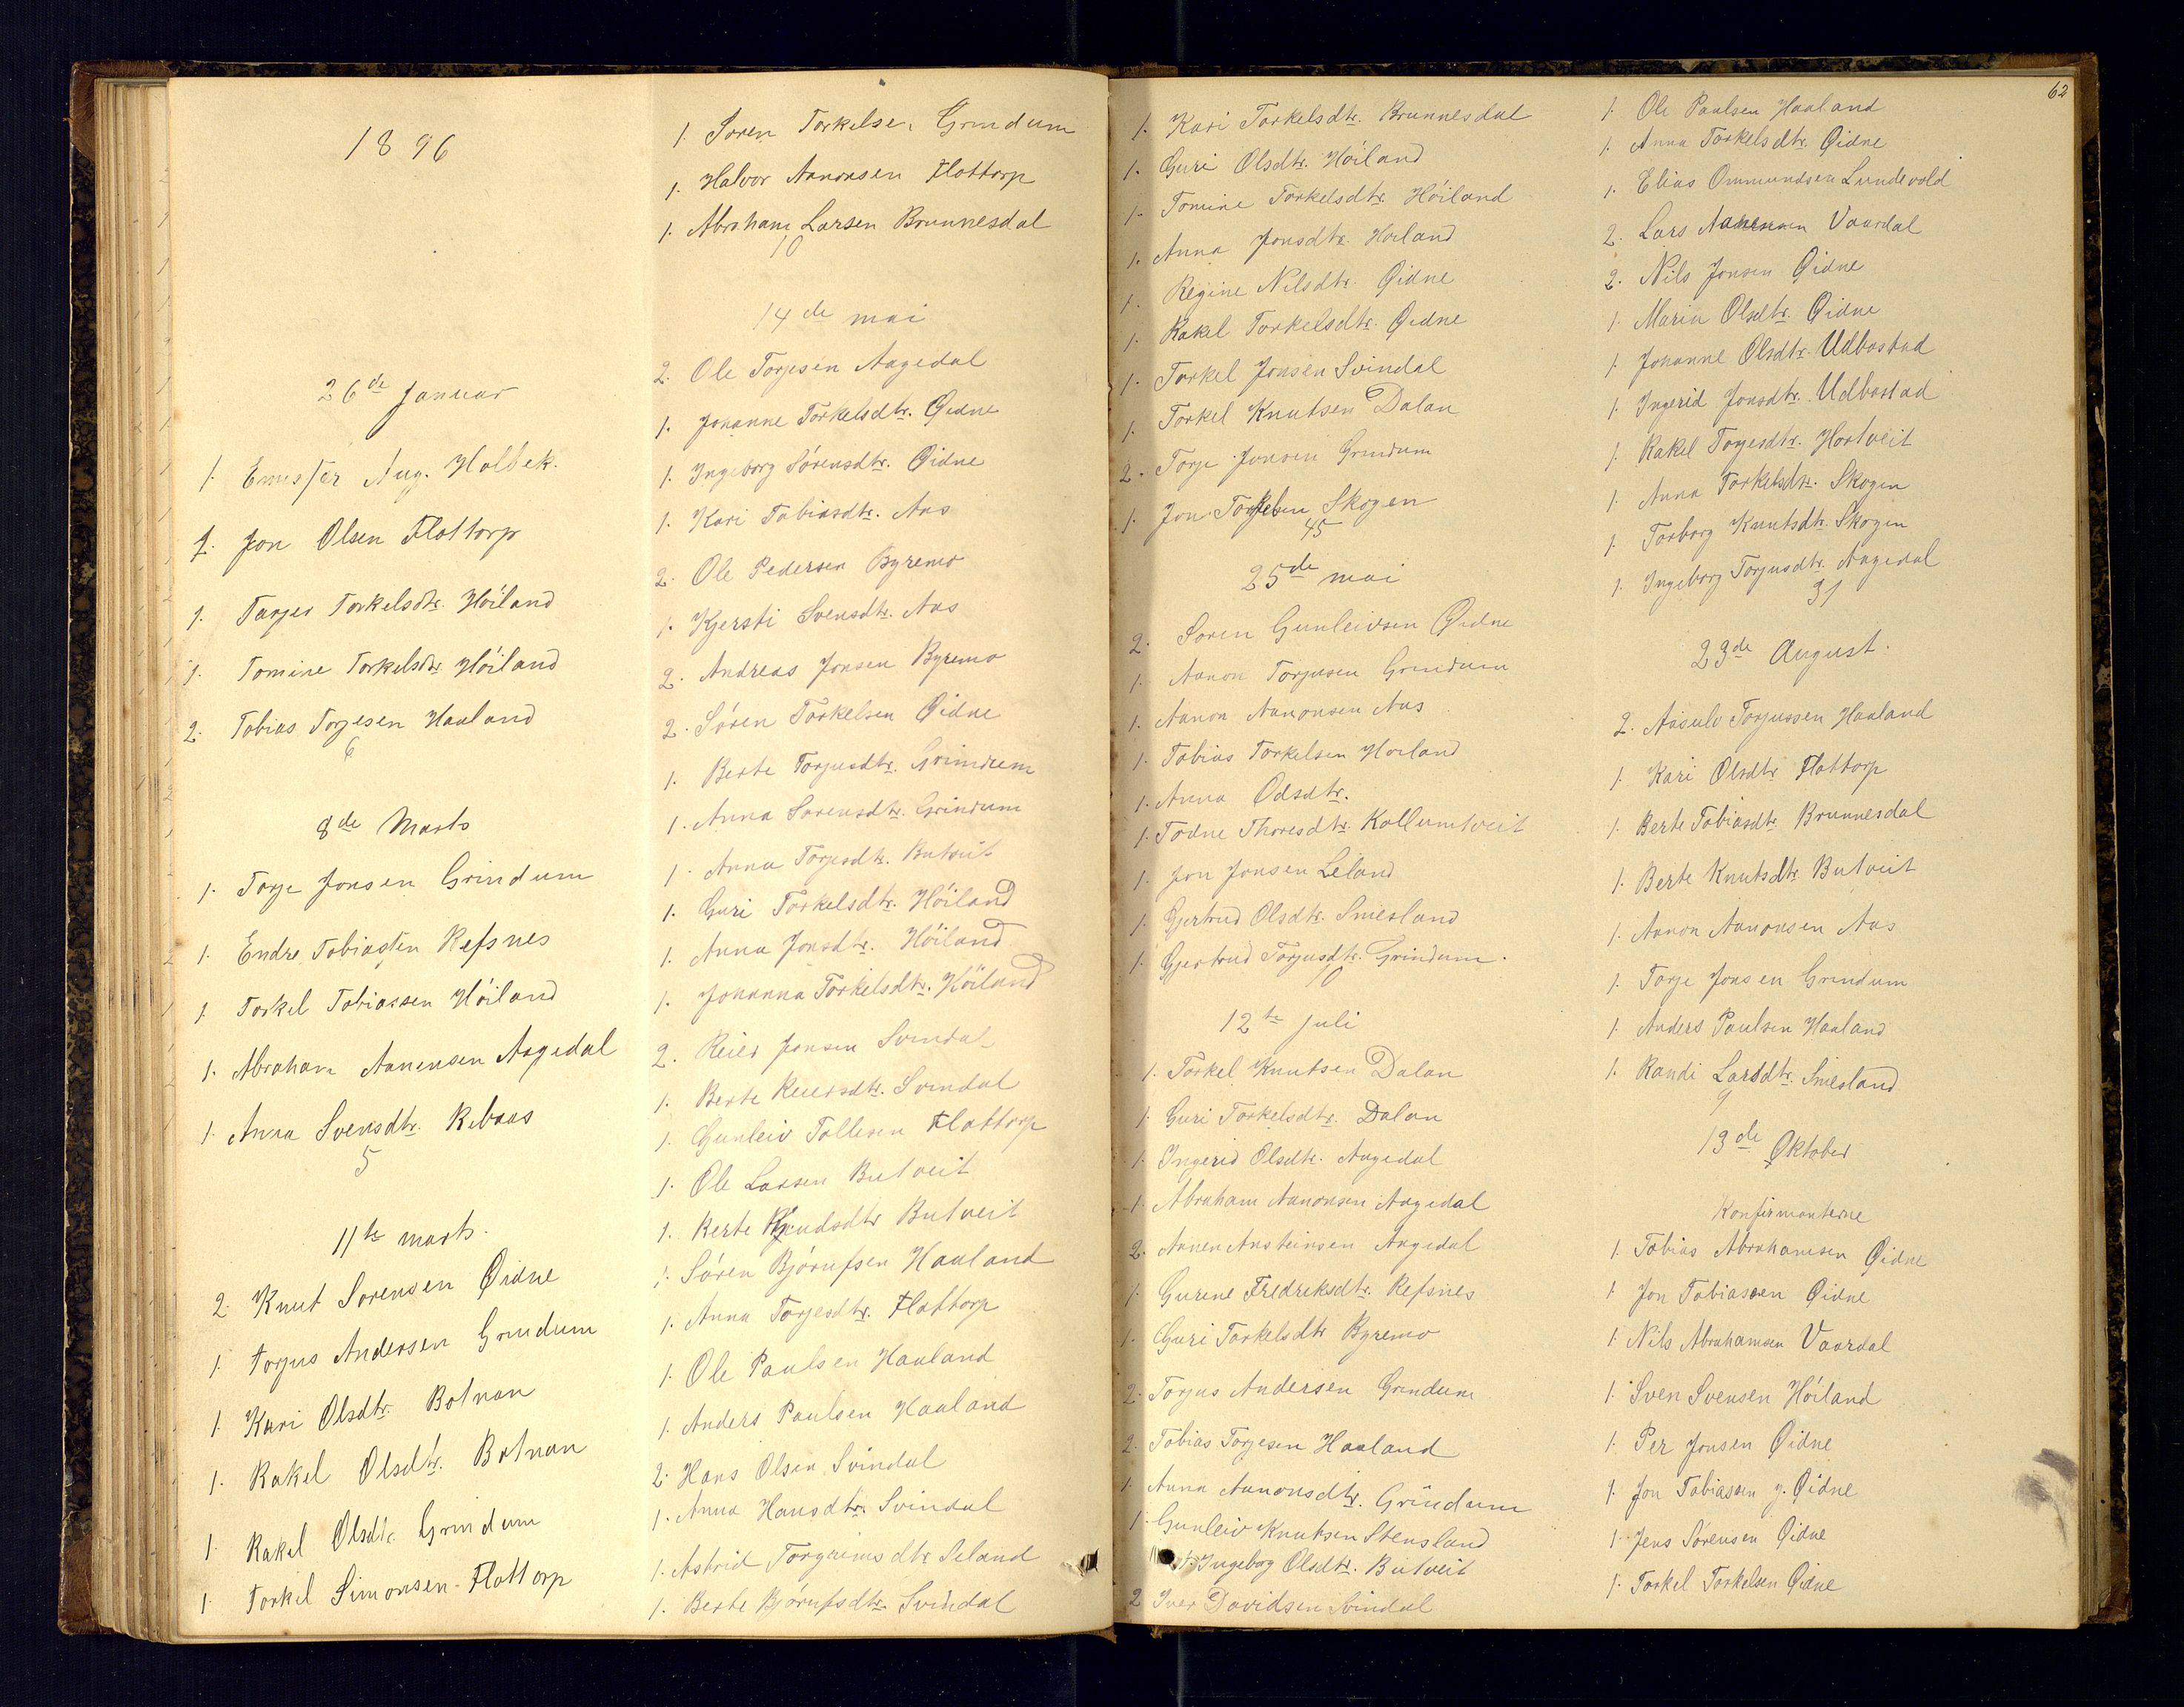 1896
26de Januar
1. Aug. Holbek.
1. Jon Olsen Flottorp
1. Torkelsdtr. Höiland
1. Tomine Torkelsdtr. Höiland
2. Tobias Torjesen Haaland
6
8de Marts
1. Torje Jonsen Grindum
1. Endre Tobiassen Refsnes
1. Torkel Tobiassen Höiland
1. Abraham Aanensen Aagedal
1. Anna Svensdtr. Rebaas
5
11te marts.
2. Knut Sorensen Øidne
1. Torjus Andersen Grindum
1. Kari Olsdtr. Botnan
1. Rakel Olsdtr. Botnan
1. Rakel Olsdtr. Grindum
1. Torkel Simonsen Flottorp
1. Soren Torkelsen Grindum
1. Halvor Aanonsen Flottorp
1. Abraham Larsen Brunnesdal
10
14de mai
2. Ole Torjesen Aagedal
1. Johanne Torkelsdtr. Øidne
1. Ingeborg Sörensdtr. Øidne
1. Kari Tobiasdtr. Aas
2. Ole Pedersen Byremo
1. Kjersti Svensdtr. Aas
2. Andreas Jonsen Byremo
2. Sören Torkelsen Øidne
1. Berte Torjusdtr. Grindum
1. Anna Sorensdtr. Grindum
1. Anna Torjesdtr. Butveit
1. Guri Torkelsdtr. Höiland
1. Anna Jonsdtr. Höiland
1. Johanna Torkelsdtr. Höiland
2. Reier Jonsen Svindal
1. Berte Reiersdtr. Svindal
1. Gunleiv Tollesen Flottorp
1. Ole Larsen Butveit
1. Berte Knudsdtr Butveit
1. Sören Björnufsen Haaland
1. Anna Torjesdtr. Flottorp
1. Ole Paulsen Haaland
1. Anders Paulsen Haaland
2. Hans Olsen Svindal
1. Anna Hansdtr. Svindal
1. Astrid Torgrimsdtr Seland
1. Berte Björnufsdtr. Svindal
1. Kari Torkelsdtr. Brunnesdal
1. Guri Olsdtr. Höiland
1. Tomine Torkelsdtr. Höiland
1. Anna Jonsdtr. Hoiland
1. Regine Nilsdtr. Øidne
1. Rakel Torkelsdtr. Øidne
1. Torkel Jonsen Svindal
1. Torkel Knutsen Dalan
2. Torje Jonsen Grindum
1. Jon Torkelsen Skogen
45
25de mai
2. Soren Gunleivsen Øidne
1. Aanon Torjusen Grindum
1. Aanon Aanonsen Aas
1. Tobias Torkelsen Hoiland
1. Anna Odsdtr.
1. Todne Thoresdtr. Kollumtveit
1. Jon Jonsen Leland
1. Gjertrud Olsdtr. Smesland
1. Gjertrud Torjusdtr. Grindum.
10
12te juli
1. Torkel Knutsen Dalan
1. Guri Torkelsdtr. Dalan
1. Ingerid Olsdtr. Aagedal
1. Abraham Aanonsen Aagedal
2. Aanen Ansteinsen Aagedal
1. Gurine Fredriksdtr. Refsnes
1. Guri Torkelsdtr Byremo
2. Torjus Andersen Grindum
2. Tobias Torjesen Haaland
1. Anna Aanonsdtr. Grindum
1. Gunleiv Knutsen Stensland
1. Ingeborg Olsdtr. Butveit
2 Iver Davidsen Svindal
62
1. Ole Paulsen Haaland
1. Anna Torkelsdtr. Øidne
1. Elias Ommundsen Lundevold
2. Lars Aanensen Vaardal
2. Nils Jonsen Øidne
1. Maria Olsdtr. Øidne
1. Johanne Olsdtr. Udbostad
1. Ingerid Jonsdtr. Udbostad
1. Rakel Torjesdtr. Hortveit
1. Anna Torkelsdtr. Skogen
1. Torborg Knutsdtr. Skogen
1. Ingeborg Torjusdtr. Aagedal
31
23de August.
2. Aasulv Torjussen Haaland
1. Kari Olsdtr Flottorp
1. Berte Tobiasdtr Brunnesdal
1. Berte Knutsdtr Butveit
1. Aanon Aanonsen Aas
1. Torje Jonsen Grindum
1. Anders Paulsen Haaland
1. Randi Larsdtr. Smesland
9
13de Oktober
Konfirmanterne
1. Tobias Abrahamsen Øidne
1. Jon Tobiassen Øidne
1. Nils Abrahamsen Vaardal
1. Sven Svensen Höiland
1. Per Jonsen Øidne
1. Jon Tobiassen y. Øidne
1. Jens Sørensen Øidne
1. Torkel Torkelsen Øidne